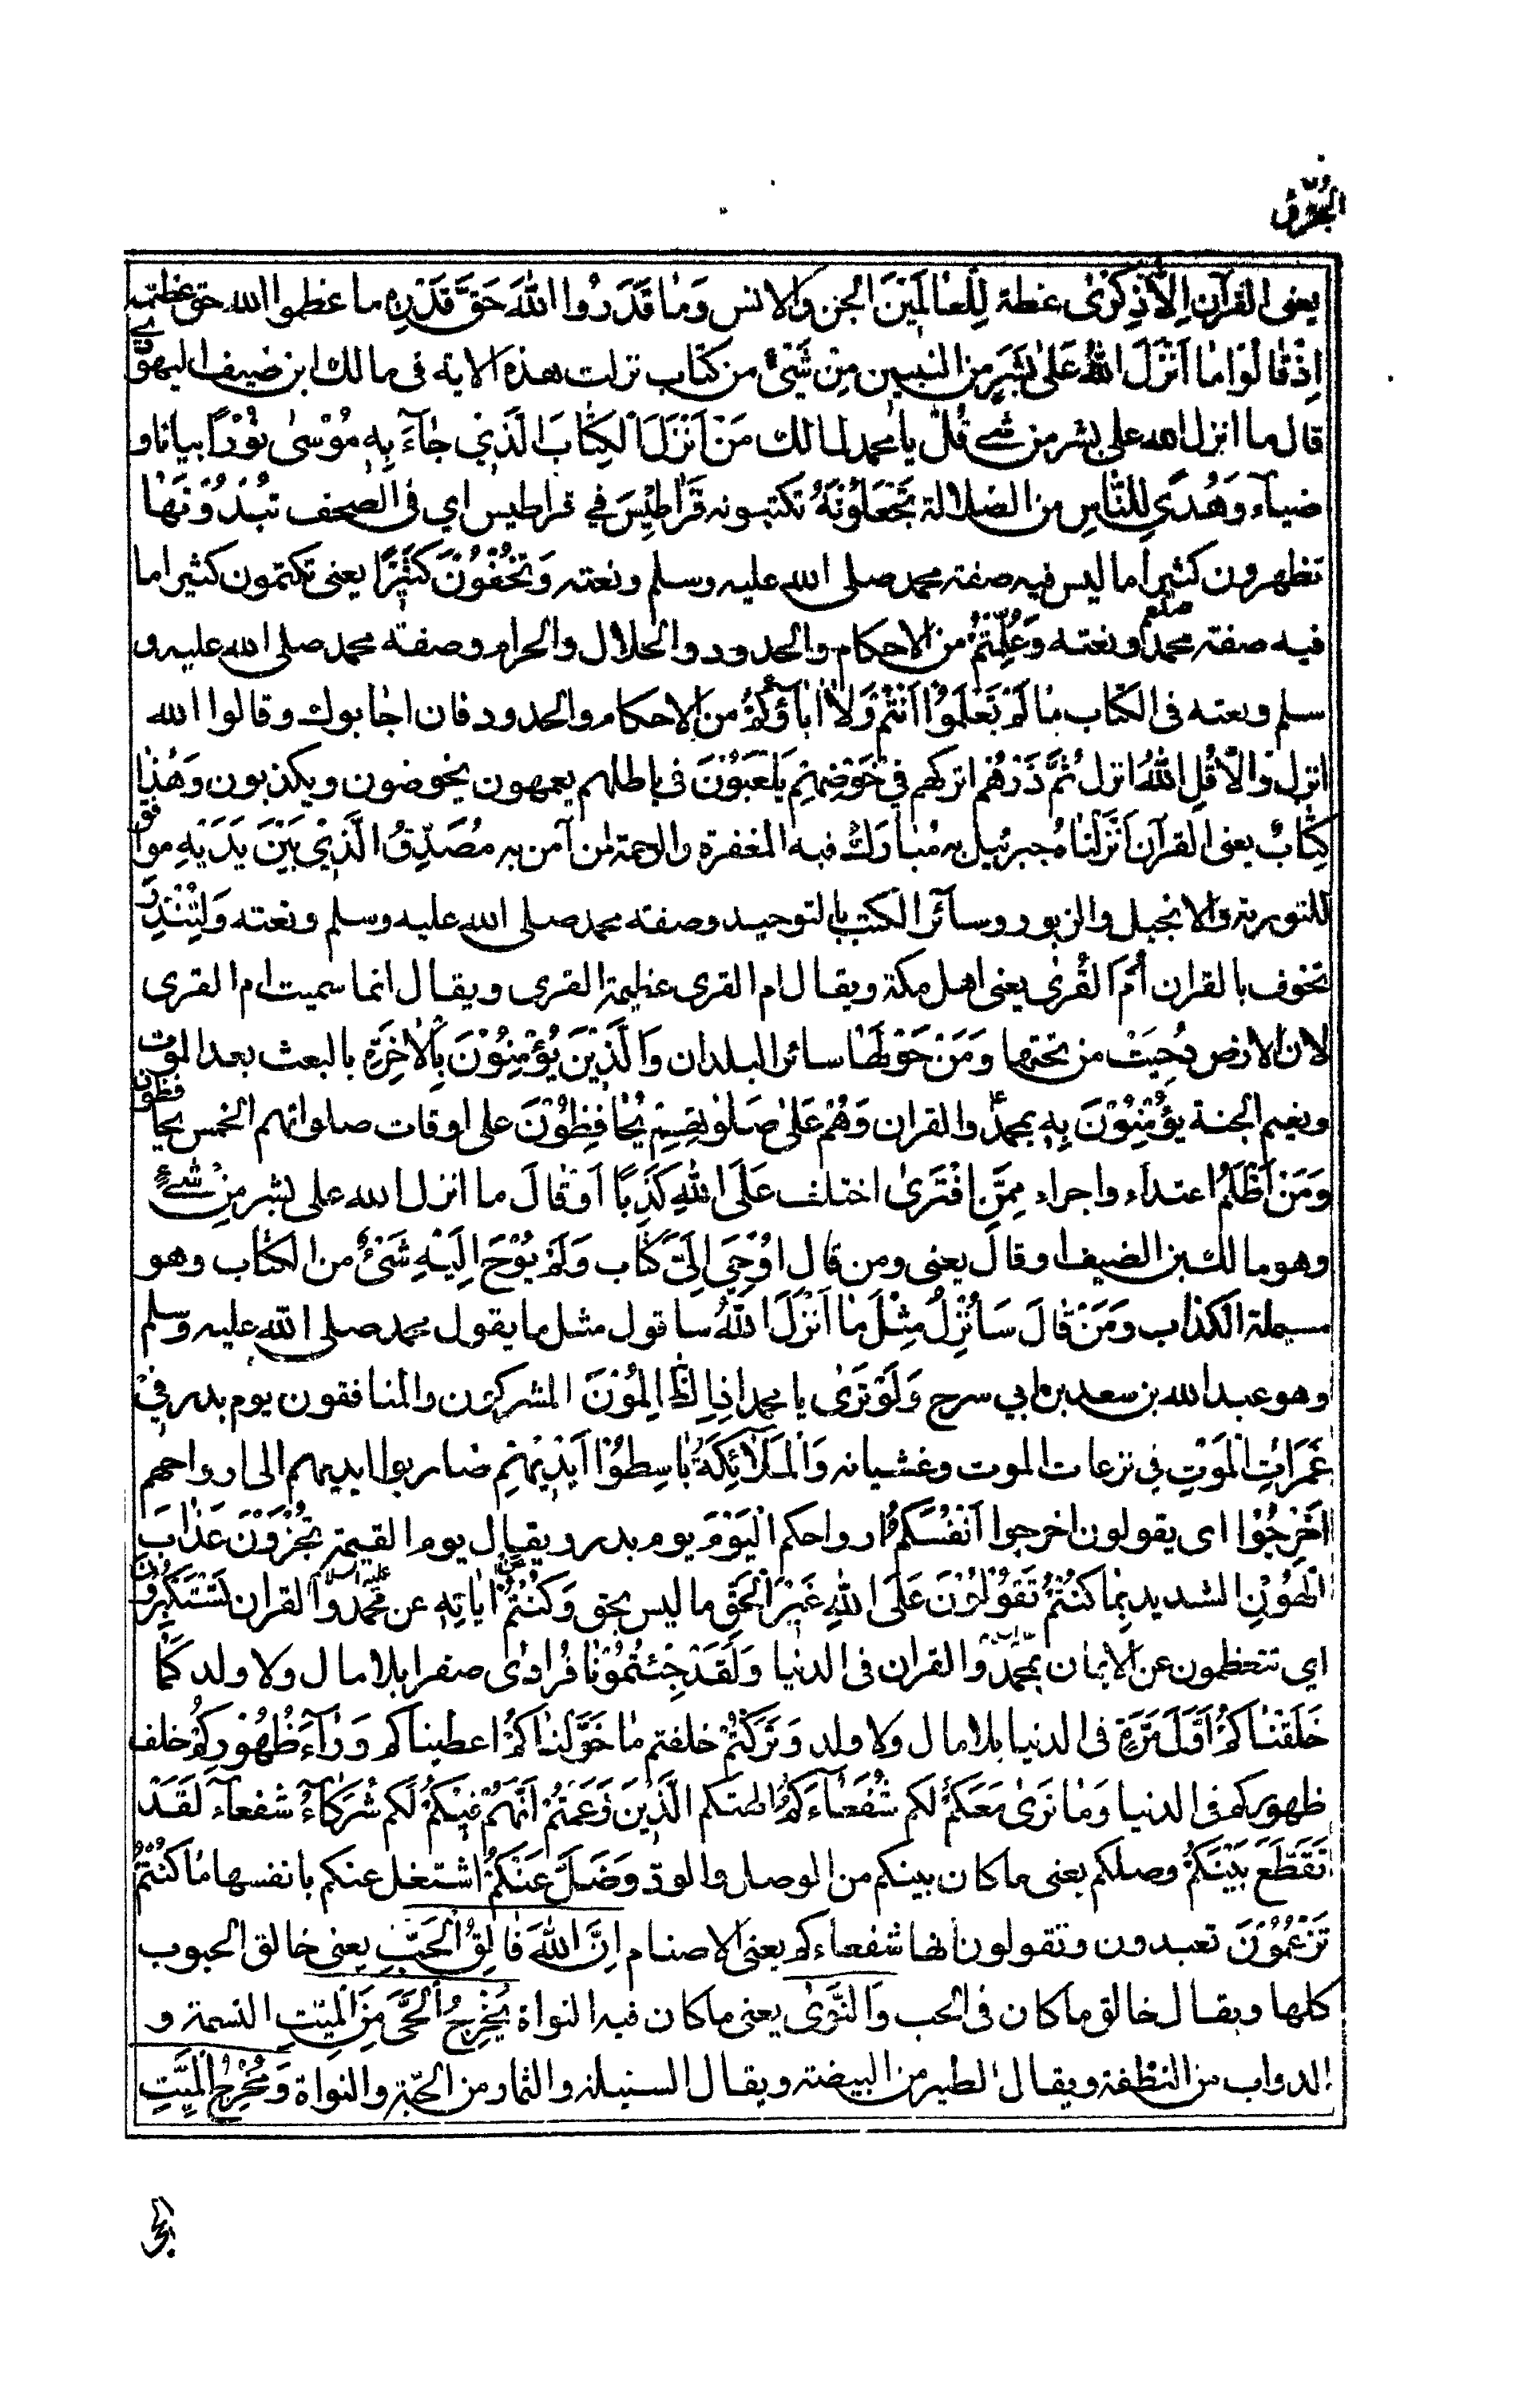 الجزؤ
يعنى القرآن اِلاَّ ذِكْرٰى عظة لِلْعٰالَمِيْنَ الجن والانس وَمٰا قَدَرُوا اللّٰهَ حَقَّ قَدْرِهِ ما عظموا الله حق عظمته
اِذْ قٰالُوْا مٰا اَنْزَلَ اللّٰهُ عَلٰى بَشَرٍ من النبيين مِنْ شَيْئٍ من كتاب نزلت هذه الاية فى مالك ابن ضيف اليهودي
قال ما انزل الله على بشر من شئ قُلْ يا محمد لمالك مَنْ اَنْزَلَ الْكِتٰابَ الَّذِي جٰآءَ بِهِ مُوْسىٰ نُوْرًا بيانا و
ضيآء وَهُدًى لِلنّٰاسِ من الضلالة تَجْعَلُوْنَهُ تكتبونه قَرٰاطِيْسَ في قراطيس اي فى الصحف تُبْدُوْنَهٰا
تظهرون كثيرا ما ليس فيه صفته محمد صلى الله عليه وسلم ونعته وَتُخْفُوْنَ كَثِيْرًا يعنى تكتمون كثيرا ما
فيه صفته محمد صلعم ونعته وَعُلِّمْتُمْ من الاحكام والحدود والحلال والحرام وصفته محمد صلى الله عليه و
سلم ونعته فى الكتاب مٰا لَمْ تَعْلَمُوْا اَنْتُمْ وَلاٰ اٰبٰآؤُكُمْ من الاحكام والحدود فان اجابوك وقالوا الله
انزل والّا قُلِ اللّٰهُ انزل ثُمَّ ذَرْهُمْ اتركهم فِيْ خَوْضِهِمْ يَلْعَبُوْنَ فى باطلهم يعمهون يخوضون ويكذبون وَهٰذٰا
كِتٰابٌ يعنى القرآن اَنْزَلْنٰاهُ جبرئيل به مُبٰارَكٌ فيه المغفرة والرحمة لمن آمن به مُصَدِّقُ الَّذِيْ بَيْنَ يَدَيْهِ موافق
للتورية والانجيل والزبور وسآئر الكتب بالتوحيد وصفته محمد صلى الله عليه وسلم ونعته وَلِتُنْذِرَ
تخوف بالقران اُمَّ الْقُرٰى يعنى اهل مكة ويقال ام القرى عظيمة القرى ويقال انما سميت ام القرى
لان الارض دُحِيَتْ من تحتها وَمَنْ حَوْلَهٰا سائر البلدان وَالَّذِيْنَ يُؤْمِنُوْنَ بِالْاٰخِرَةِ بالبعث بعد الموت
ونعيم الجنة يُؤْمِنُوْنَ بِهِ بمحمد والقران وَهُمْ عَلٰى صَلوٰتِهِمْ يُحٰافِظُوْنَ على اوقات صلواتهم الخمس يحافظون
وَمَنْ اَظْلَمُ اعتداء واجراء مِمَّنِ افْتَرٰى اختلف عَلَى اللّٰهِ كَذِبًا اَوْ قٰالَ ما انزل الله على بشر من شئ
وهو مالك بن الضيف او قال يعنى ومن قال اُوْحِيَ اِلَيَّ كتاب وَلَمْ يُوْحَ اِلَيْهِ شَيْئٌ من الكتاب وهو
مسيلمة الكذاب وَمَنْ قٰالَ سَاُنْزِلُ مِثْلَ مٰا اَنْزَلَ اللّٰهُ ساقول مثل ما يقول محمد صلى الله عليه وسلم
وهو عبد الله بن سعد بن ابي سرح وَلَوْ تَرٰى يا محمد اِذِ الظّٰالِمُوْنَ المشركون والمنافقون يوم بدر فِيْ
غَمَرٰاتِ الْمَوْتِ في نزعات الموت وغشيانه وَالْمَلآئِكَةُ بٰاسِطُوْا اَيْدِيْهِمْ ضاربوا ايديهم الى ارواحهم
اَخْرِجُوْا اى يقولون اخرجوا اَنْفُسَكُمُ ارواحكم الْيَوْمَ يوم بدر ويقال يوم القيمة تُجْزَوْنَ عَذٰابَ
الْهُوْنِ الشديد بِمٰا كُنْتُمْ تَقُوْلُوْنَ عَلَى اللّٰهِ غَيْرَ الْحَقِّ ما ليس بحق وَكُنْتُمْ عَنْ اٰيٰاتِهِ عن محمد عليه السلام والقران تَسْتَكْبِرُوْنَ
اي تتعظمون عن الايمان بمحمد والقران فى الدنيا وَلَقَدْ جِئْتُمُوْنٰا فُرٰادٰى صفرا بلا مال ولا ولد كَمٰا
خَلَقْنٰاكُمْ اَوَّلَ مَرَّةٍ فى الدنيا بلا مال ولا ولد وَتَرَكْتُمْ خلفتم مٰا خَوَّلْنٰاكُمْ اعطيناكم وَرٰآءَ ظُهُوْرِكُمْ خلف
ظهوركم فى الدنيا وَمٰا نَرٰى مَعَكُمْ لكم شُفَعٰآءَكُمُ الهتكم الَّذِيْنَ زَعَمْتُمْ اَنَّهُمْ فِيْكُمْ لكم شُرَكٰآءُ شفعآء لَقَدْ
تَقَطَّعَ بَيْنَكُمْ وصلكم يعنى ما كان بينكم من الوصل والودّ وَضَلَّ عَنْكُمْ اشتغل عنكم بانفسها مٰا كُنْتُمْ
تَزْعُمُوْنَ تعبدون وتقولون انها شفعاءكم يعنى الاصنام اِنَّ اللّٰهَ فٰالِقُ الْحَبِّ يعنى خالق الحبوب
كلها ويقال خالق ما كان فى الحب وَالنَّوٰى يعنى ما كان فيه النواة يُخْرِجُ الْحَيَّ مِنَ الْمَيِّتِ النسمة و
الدواب من النطفة ويقال الطير من البيضة ويقال السنبلة والثمار من الحبّة والنواة وَمُخْرِجُ الْمَيِّتِ